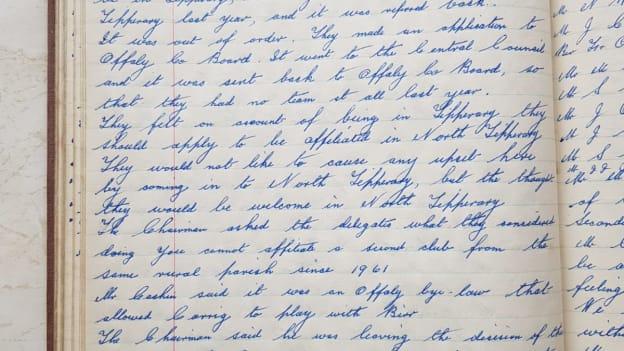 be in Tipperary,
Tipperary last year, and it was refered back.
It was out of order. They made an application to
Offaly Co Board. It went to the Central Council
and it was sent back to Offaly Co Board, so
that they had no team, it all last year.
They felt on account of being in Tipperary they
should apply to be affiliated in North Tipperary
They would not like to cause any upset here
by coming in to North Tipperary, but the thought
they would be welcome in North Tipperary
The Chairman asked the delegates what they considered
doing you cannot affiliate a second club from the
same rural parish since 1961
Mr Caskin said it was an Offaly bye-law that
allowed Carrig to play with Birr
The Chairman said he was leaving the decision of the
M N
M J C
Rev Fr O
Mr M
M S
M J
M J
M S
of
Second
Mr
be a
feeling
We
with